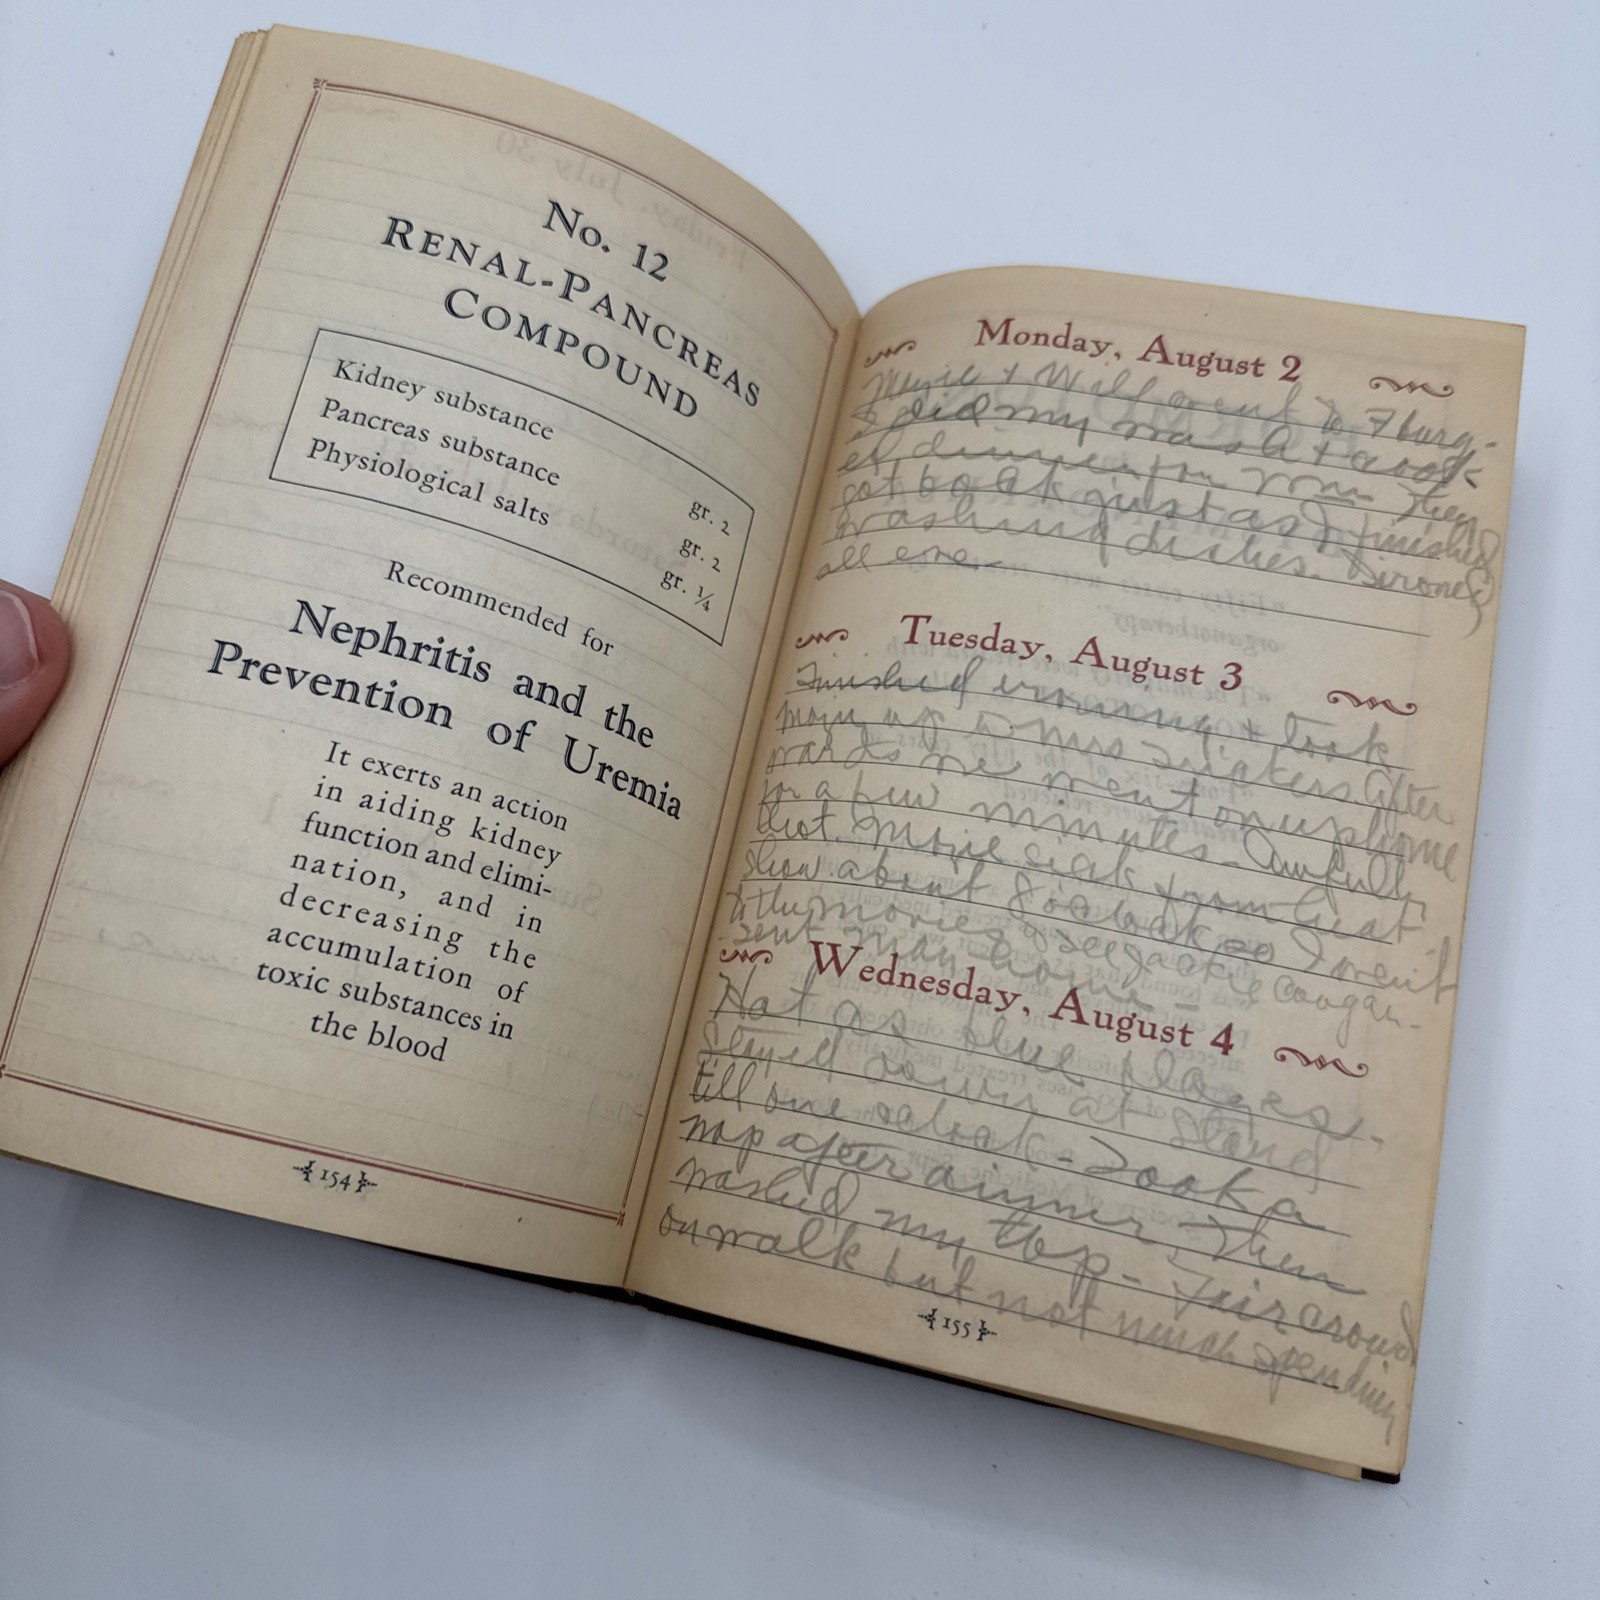 No. 12
RENAL-PANCREAS
COMPOUND
Kidney substance gr. 2
Pancreas substance gr. 2
Physiological salts gr. ¼
Recommended for
Nephritis and the
Prevention of Uremia
It exerts an action
in aiding kidney
function and elimi-
nation, and in
decreasing the
accumulation of
toxic substances in
the blood
154
Monday, August 2
+ Will went to
I did my wash + cook-
ed dinner for They
got back just as I finished
washing dishes. I ironed
all eve.-
Tuesday, August 3
Finished ironing + took
up to Mrs After
wards we went on up home
for a few minutes - Awfully
hot. sick from heat
show about 8 o'clock so I went
to the movies + see Jackie Coogan.
sent home -
Wednesday, August 4
Hot as blue blazes.
Stayed down at Stand
till one oclock - Took a
nap after dinner. Then
washed my top - Fair crowd
on walk but not much spending
155